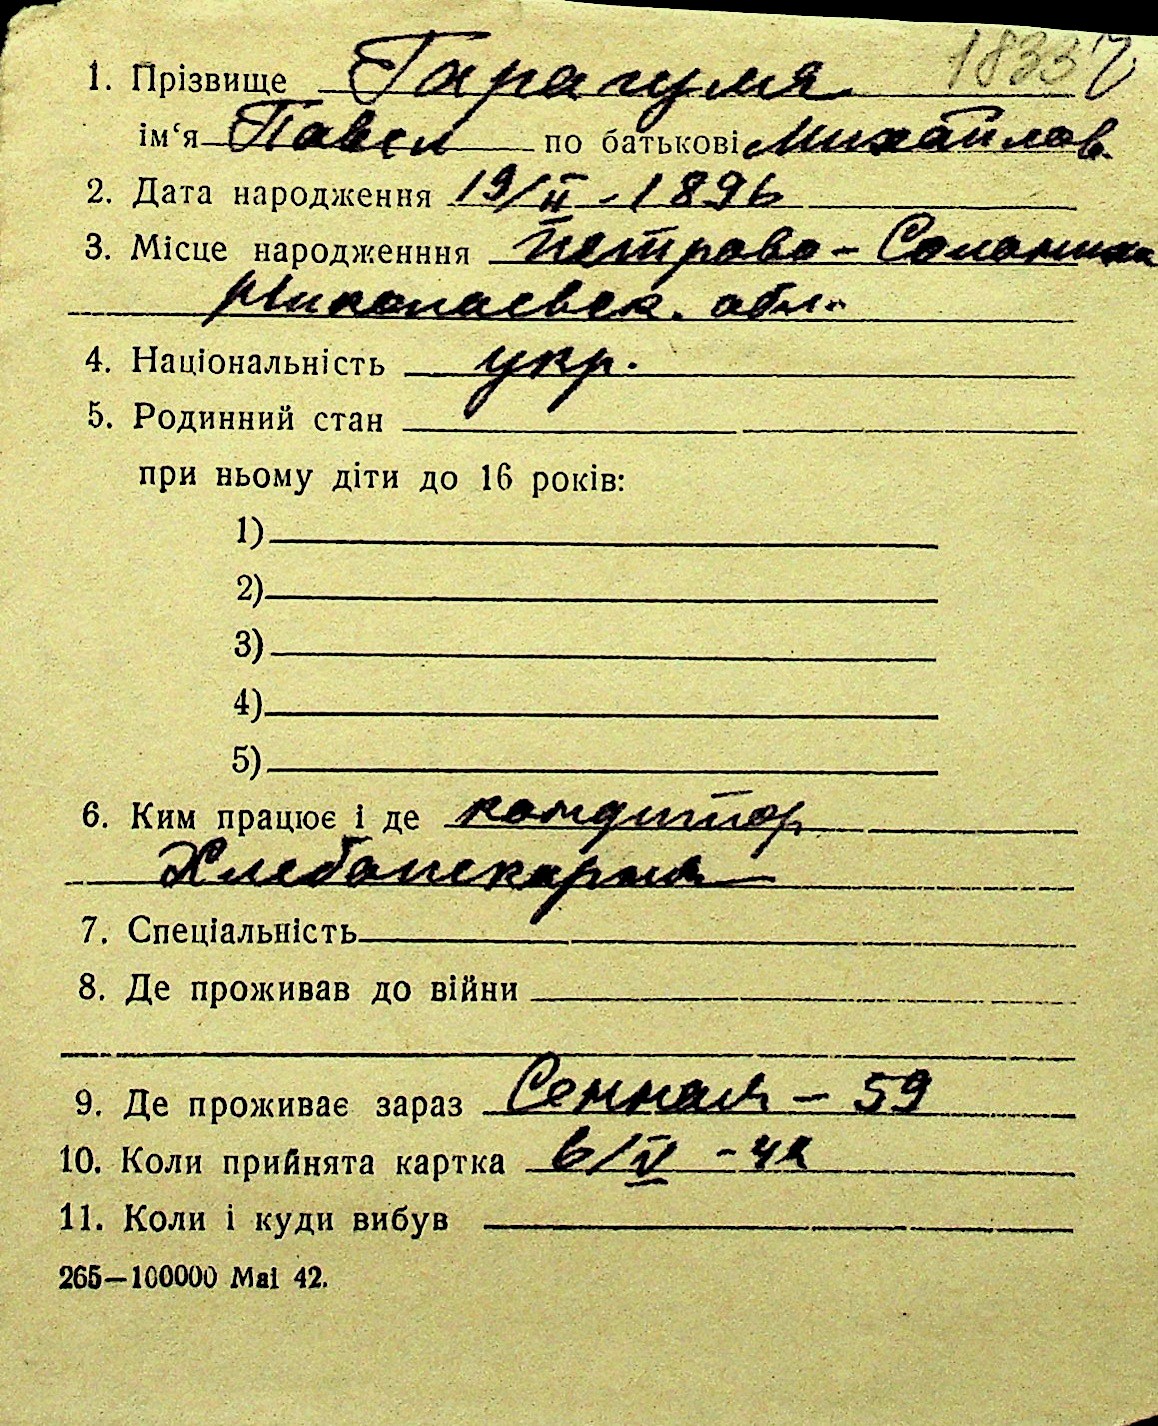 1. Прізвище Гарагуля
ім‘я Павел по батькові Михайлов.
2. Дата народження 19/II - 1896
3. Місце народженння Петрово - Солониха
Николаевск. обл.
4. Національність укр.
5. Родинний стан
при ньому діти до 16 років:
1)
2)
3)
4)
5)
6. Ким працює і де кондитор
Хлебопекарня
7. Спеціальність
8. Де проживав до війни
9. Де проживає зараз Сенная - 59
10. Коли прийнята картка 6/V - 42
11. Коли і куди вибув
265—100000 Mai 42.